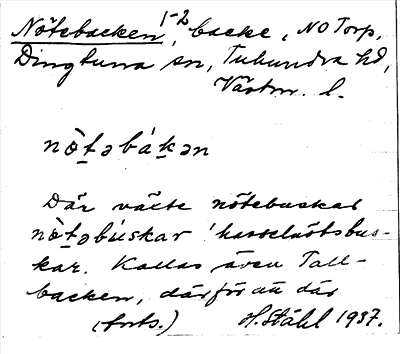 Nötebacken 1-2, backe, NO Torp,
Dingtuna sn, Tuhundra hd,
Västm. l.
nö̀t̠əbák̠ən
Där växte nötebuskar
nö̀t̠əbúskar 'hasselnötsbus-
kar. Kallas även Tall-
backen, därför att där
(forts.) H. Ståhl 1937.